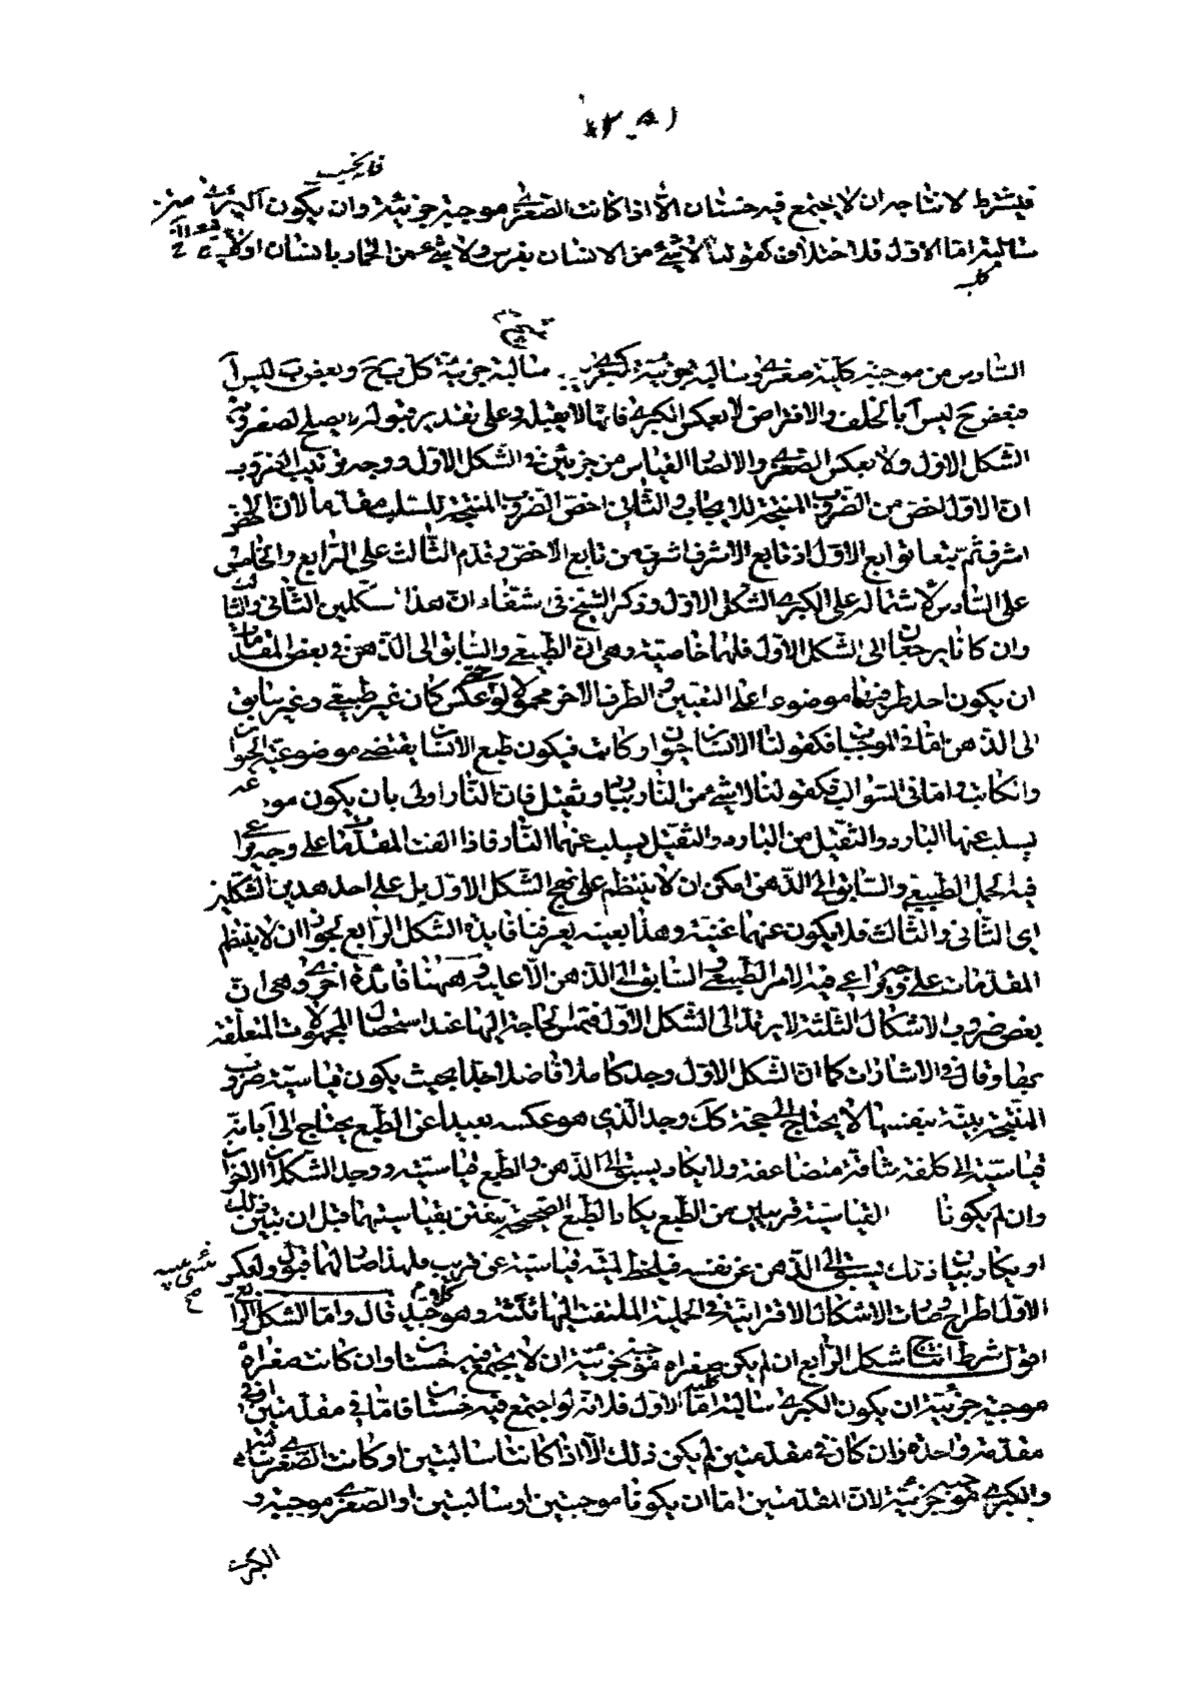 فيشترط لانتاجه ان لا يجتمع فيه خستان الا اذا كانت الصغرى موجبة جزئية وان يكون الكبرى
سالبة اما الاول فلاختلاف كقولنا لا شئ من الانسان بفرس ولا شئ من الحمار بانسان او
كلية
السادس من موجبة كلية صغرى وسالبة جزئية كبرى ينتج سالبة جزئية كل ب ج وبعض ب ليس آ
فبعض ج ليس آ بالخلف والافتراض لا بعكس الكبرى فانها لا يقبله وعلى تقدير قبوله لا يصلح لصغروية
الشكل الاول ولا بعكس الصغرى والا لصار القياس من جزئيتين في الشكل الاول ووجه ترتيب الضروب
ان الاول اخص من الضروب المنتجة للايجاب والثاني اخص الضروب المنتجة للسلب فقدما لان الاخص
اشرف ثم يتبعا توابع الاول اذ تابع الاشرف اشرف من تابع الاخس وقدم الثالث على الرابع والخامس
على السادس لاشتماله على الكبرى الشكل الاول وذكر الشيخ في شفاء ان هذا شكلين الثاني والثالث
وان كانا يرجعان الى الشكل الاول فلهما خاصية وهي ان الطبيعي والسابق الى الذهن في بعض المقدمات
ان يكون احد طرفيها موضوعا على التعيين والطرف الاخر محمولا حتى لو عكس كان غير طبيعي وغير سابق
الى الذهن اما في الموجبات فكقولنا الانسان حيوان او كاتب فيكون طبع الانسان يقتضي موضوعية الحيوان
والكاتب واما في السوالب فكقولنا لا شئ من النار ببارد وثقيل فان النار اولى بان يكون موضوعة
يسلب عنها البارد والثقيل من البارد والثقيل يسلب عنهما النار فاذا الفت المقدمات على وجه يراعى
فيه الحمل الطبيعي والسابق الى الذهن امكن ان لا ينتظم على نهج الشكل الاول بل على احد هدين الشكلين
اي الثاني والثالث فلا يكون عنهما غنية وهذا بعينه يعرفنا فايدة الشكل الرابع لجواز ان لا ينتظم
المقدمات على وجه يراعي فيه الامر الطبيعي والسابق الى الذهن الا عليه وههنا فائدة اخرى وهي ان
بعض ضروب الاشكال الثلثة لا يرتد الى الشكل الاول فتمس الحاجة اليها عند استحصال المجهولات المتعلقة
بها وقال في الاشارات كما ان الشكل الاول وجد كاملا فاضلا جدا بحيث يكون قياسية ضروبه
المنتجة بينة بنفسها لا يحتاج الى حجة كك وجد الذي هو عكسه بعيدا عن الطبع يحتاج الى ابانة
قياسيته الى كلفة شاقة متضاعفة ولا يكاد يسبق الى الذهن والطبع قياسيته ووجد الشكلان الاخران
وان لم يكونا القياسية قريبين من الطبع يكاد الطبع الصحيح يتفطن بقياسيتهما قبل ان يتبين ذلك
او يكاد بيان ذلك يسبق الى الذهن عن نفسه فيلحظ لمية قياسيته عن قريب فلهذا صار لهما قبول ولعكس
الاول اطراح وصارت الاشكال الاقترانية في الحملية الملتفت اليها ثلثة وهو جيد قال واما الشكل الرابع
اقول شرط انتاج شكل الرابع ان لم يكن صغراه موجبة جزئية ان لا يجتمع فيه خستان وان كانت صغراه
موجبة جزئية ان يكون الكبرى سالبة كلية اما الاول فلانه لو اجتمع فيه خستان فاما في مقدمتين او في
مقدمة واحدة وان كان في مقدمتين لم يكن ذلك الا اذا كانتا سالبتين او كانت الصغرى سالبة
والكبرى موجبة جزئية لان المقدمتين اما ان يكونا موجبتين او سالبتين او الصغرى موجبة و
الكبرى